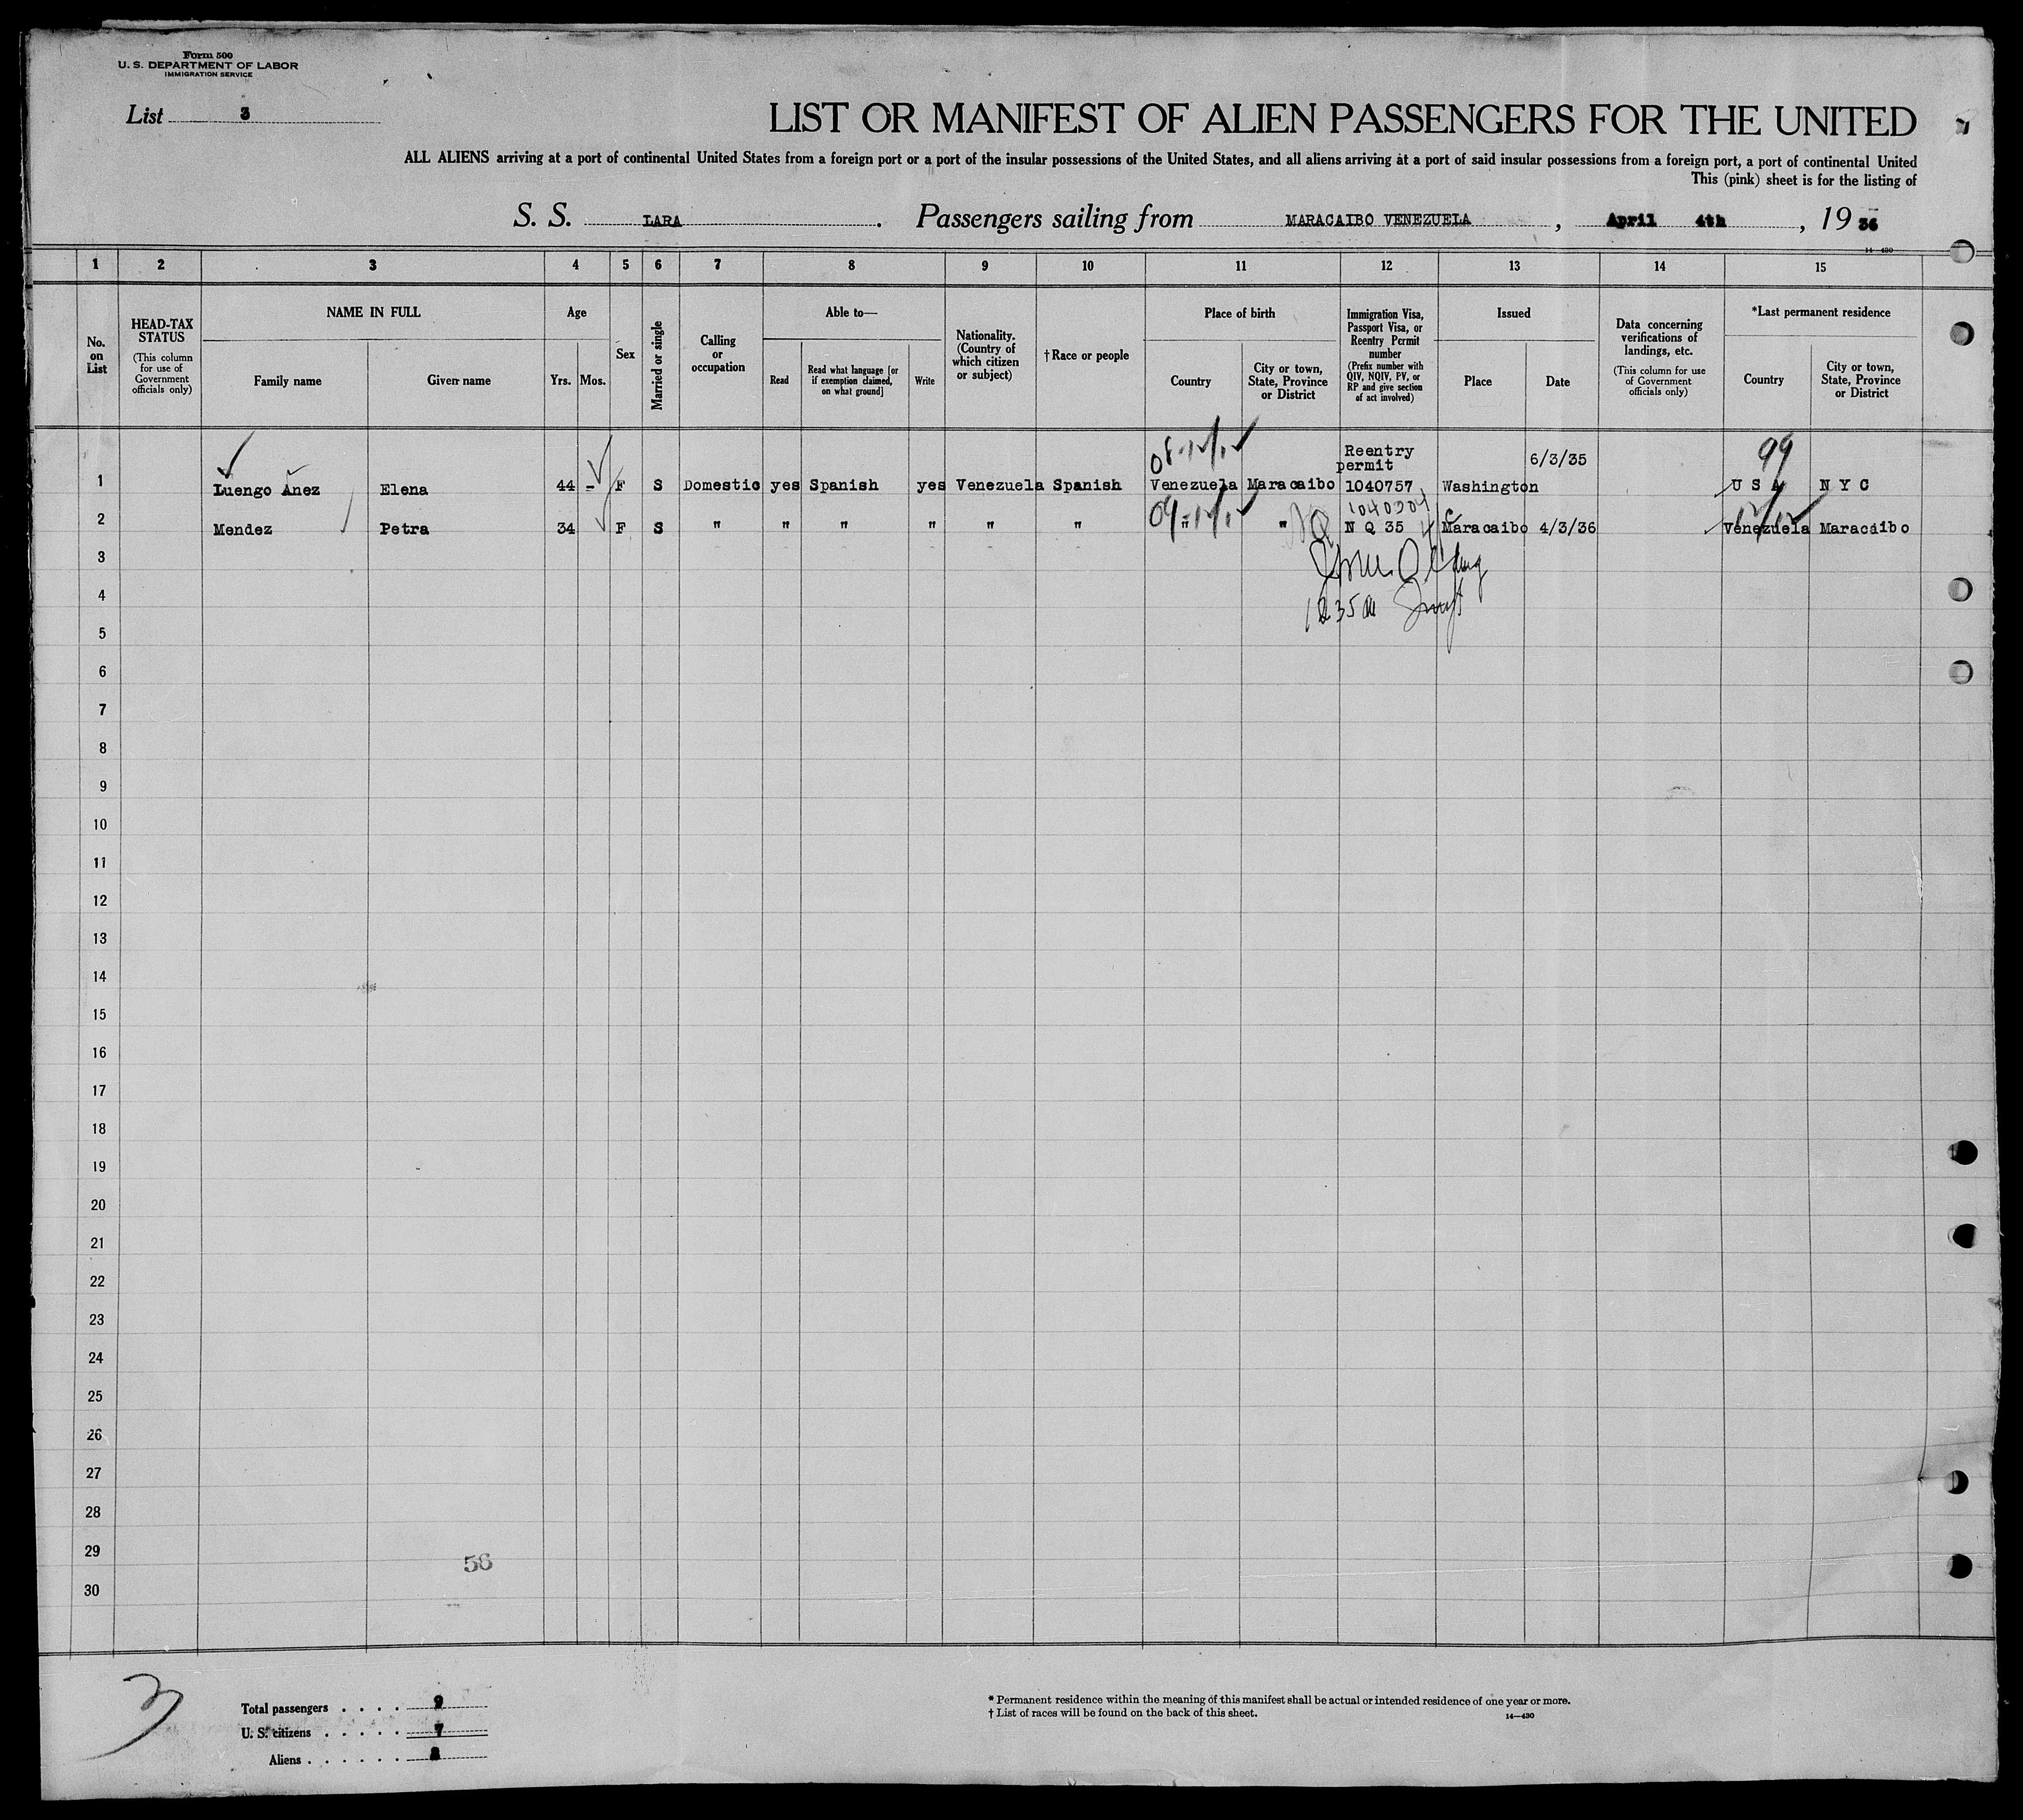 Form 500
U. S. DEPARTMENT OF LABOR
IMMIGRATION SERVICE
List 3
LIST OR MANIFEST OF ALIEN PASSENGERS FOR THE UNITED
ALL ALIENS arriving at a port of continental United States from a foreign port or a port of the insular possessions of the United States, and all aliens arriving at a port of said insular possessions from a foreign port, a port of continental United
This (pink) sheet is for the listing of
S. S. LARA. Passengers sailing from MARACAIBO VENEZUELA, April 4th, 19 36
14—430
1 2 3 4 5 6 7 8 9 10 11 12 13 14 15
No. on List
HEAD-TAX STATUS (This column for use of Government officials only)
NAME IN FULL
Family name Given name
Age
Yrs. Mos.
Sex
Married or single
Calling or occupation
Able to—
Read
Read what language [or if exemption claimed, on what ground]
Write
Nationality. (Country of which citizen or subject)
†Race or people
Place of birth
Country
City or town, State, Province or District
Immigration Visa, Passport Visa, or Reentry Permit number (Prefix number with QIV, NQIV, PV, or RP and give section of act involved)
Issued
Place Date
Data concerning verifications of landings, etc. (This column for use of Government officials only)
*Last permanent residence
Country
City or town, State, Province or District
Reentry permit 6/3/35 99
1 Luengo Anez Elena 44 - F S Domestic yes Spanish yes Venezuela Spanish Venezuela Maracaibo 1040757 Washington U S A N Y C
2 Mendez Petra 34 F S " " " " " " " " N Q 35 Maracaibo 4/3/36 Venezuela Maracaibo
3
4
5
6
7
8
9
10
11
12
13
14
15
16
17
18
19
20
21
22
23
24
25
26
27
28
29
56
30
3
Total passengers . . . . 9
U. S. citizens . . . . . 7
Aliens . . . . . . 2
* Permanent residence within the meaning of this manifest shall be actual or intended residence of one year or more.
† List of races will be found on the back of this sheet.
14—430